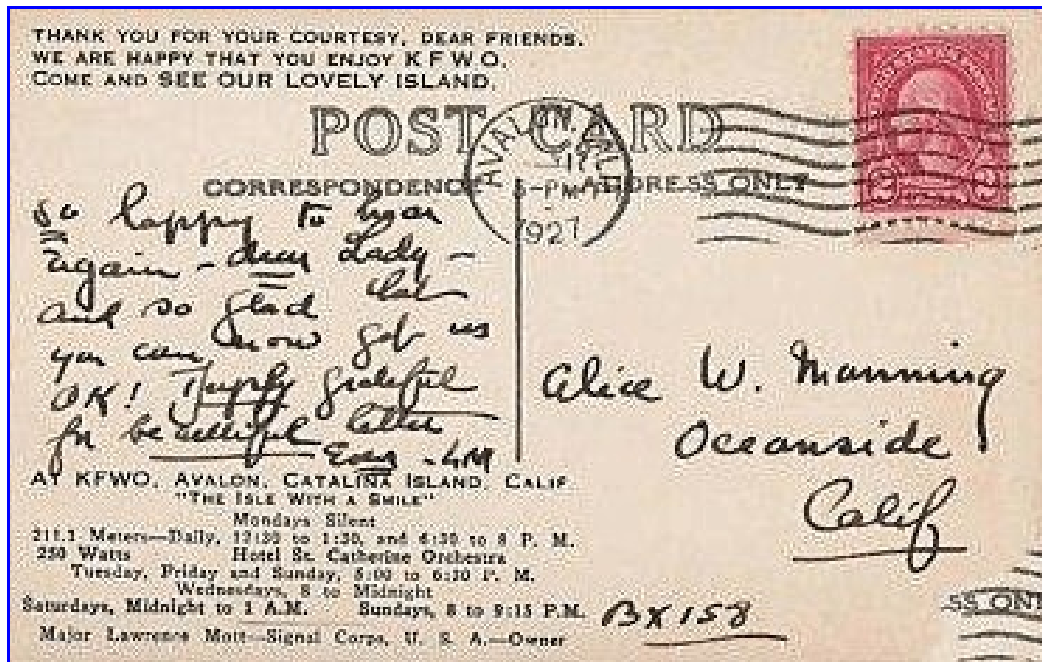 THANK YOU FOR YOUR COURTESY, DEAR FRIENDS.
WE ARE HAPPY THAT YOU ENJOY KFWO.
COME AND SEE OUR LOVELY ISLAND.
POST CARD
AVALON, CAL
17
5-PM
1927
CORRESPONDENCE
ADDRESS ONLY
So happy to hear
again - dear Lady -
and so glad that
you can now get us
OK! Deeply grateful
for beautiful letter
LM
Alice W. Manning
Oceanside
Calif
2 2
AT KFWO, AVALON, CATALINA ISLAND, CALIF
"THE ISLE WITH A SMILE"
Mondays Silent
211.1 Meters—Daily, 12:30 to 1:30, and 6:30 to 8 P. M.
250 Watts Hotel St. Catherine Orchestra
Tuesday, Friday and Sunday, 6:00 to 6:30 P. M.
Wednesdays, 8 to Midnight
Saturdays, Midnight to 1 A.M. Sundays, 8 to 9:15 P.M.
Major Lawrence Mott—Signal Corps, U. S. A.—Owner
BX 158
SS ONL